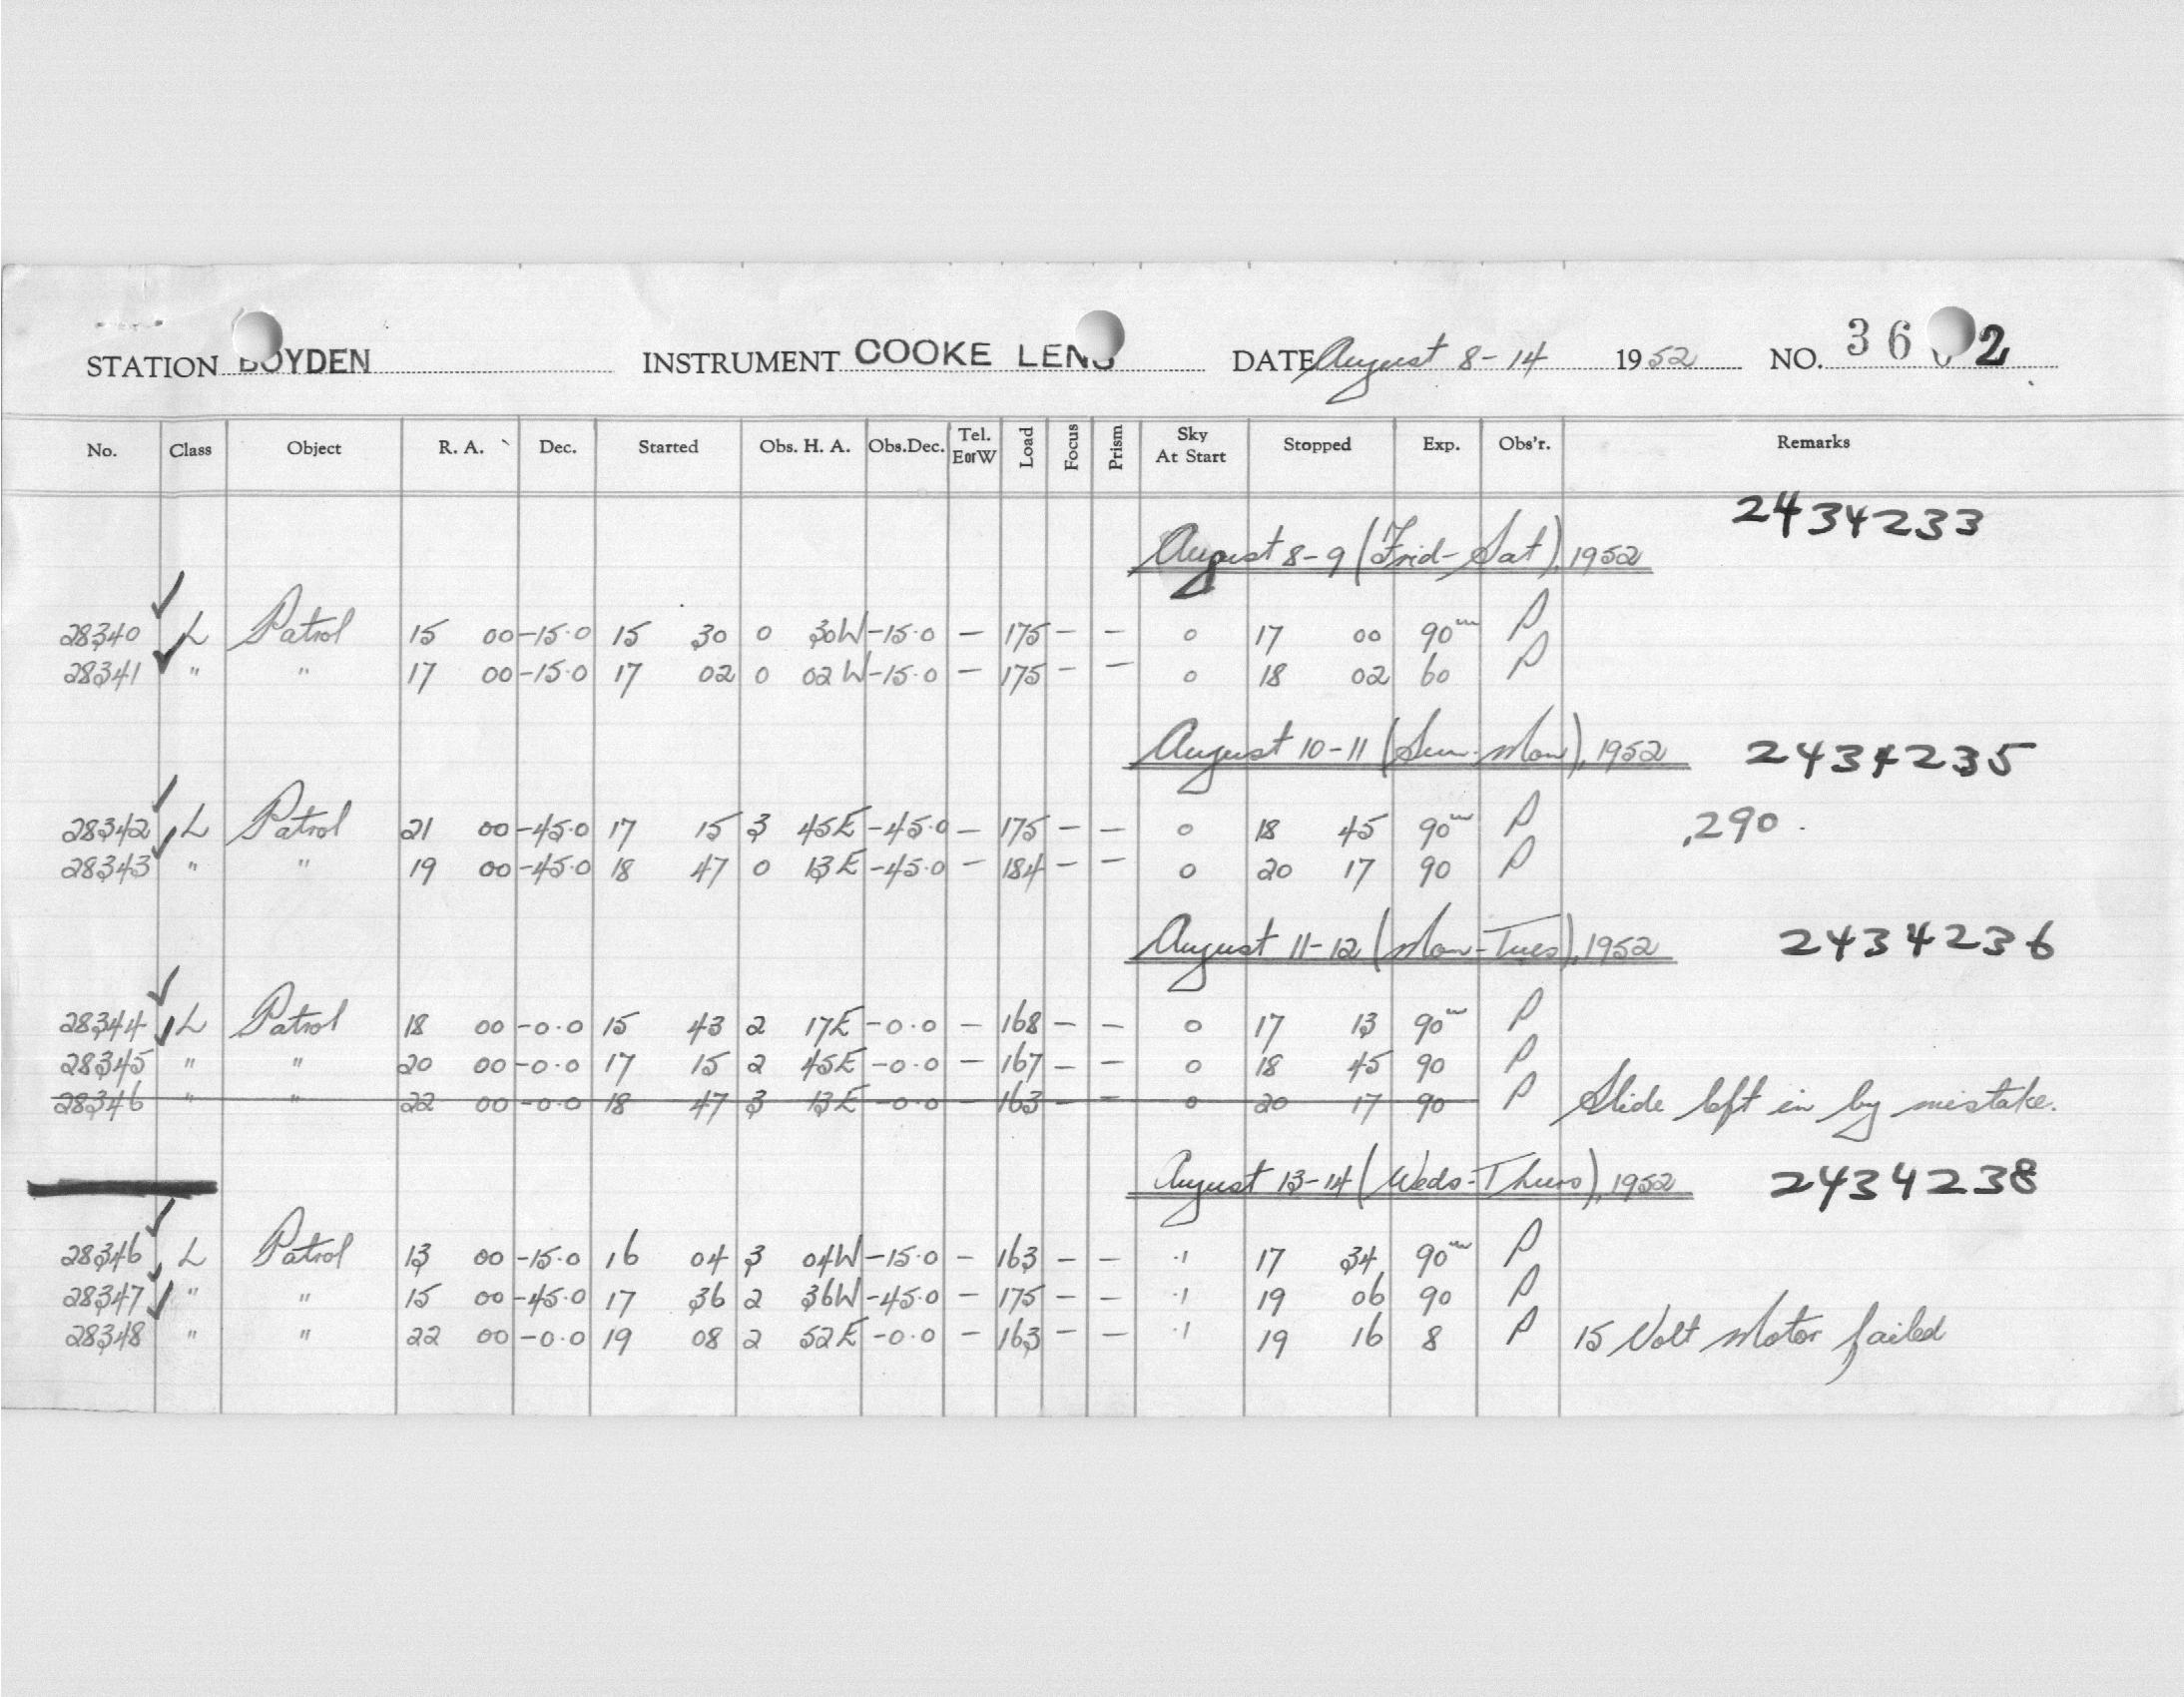 STATION BOYDEN INSTRUMENT COOKE LENS DATE August 8-14 1952 NO. 36 2
No. Class Object R. A. Dec. Started Obs. H. A. Obs.Dec. Tel. EorW Load Focus Prism Sky At Start Stopped Exp. Obs'r. Remarks
2434233
August 8-9 (Frid-Sat), 1952
28340 L Patrol 15 00 -15.0 15 30 0 30W -15.0 — 175 — — 0 17 00 90m P
28341 " " 17 00 -15.0 17 02 0 02W -15.0 — 175 — — 0 18 02 60 P
August 10-11 (Sun-Mon), 1952 2434235
28342 L Patrol 21 00 -45.0 17 15 3 45E -45.0 — 175 — — 0 18 45 90m P .290
28343 " " 19 00 -45.0 18 47 0 13E -45.0 — 184 — — 0 20 17 90 P
August 11-12 (Mon-Tues), 1952 2434236
28344 L Patrol 18 00 -0.0 15 43 2 17E -0.0 — 168 — — 0 17 13 90m P
28345 " " 20 00 -0.0 17 15 2 45E -0.0 — 167 — — 0 18 45 90 P
28346 " " 22 00 -0.0 18 47 3 13E -0.0 — 163 — — 0 20 17 90 P Slide left in by mistake.
August 13-14 (Weds-Thurs), 1952 2434238
28346 L Patrol 13 00 -15.0 16 04 3 04W -15.0 — 163 — — .1 17 34 90m P
28347 " " 15 00 -45.0 17 36 2 36W -45.0 — 175 — — .1 19 06 90 P
28348 " " 22 00 -0.0 19 08 2 52E -0.0 — 163 — — .1 19 16 8 P 15 Volt Motor failed